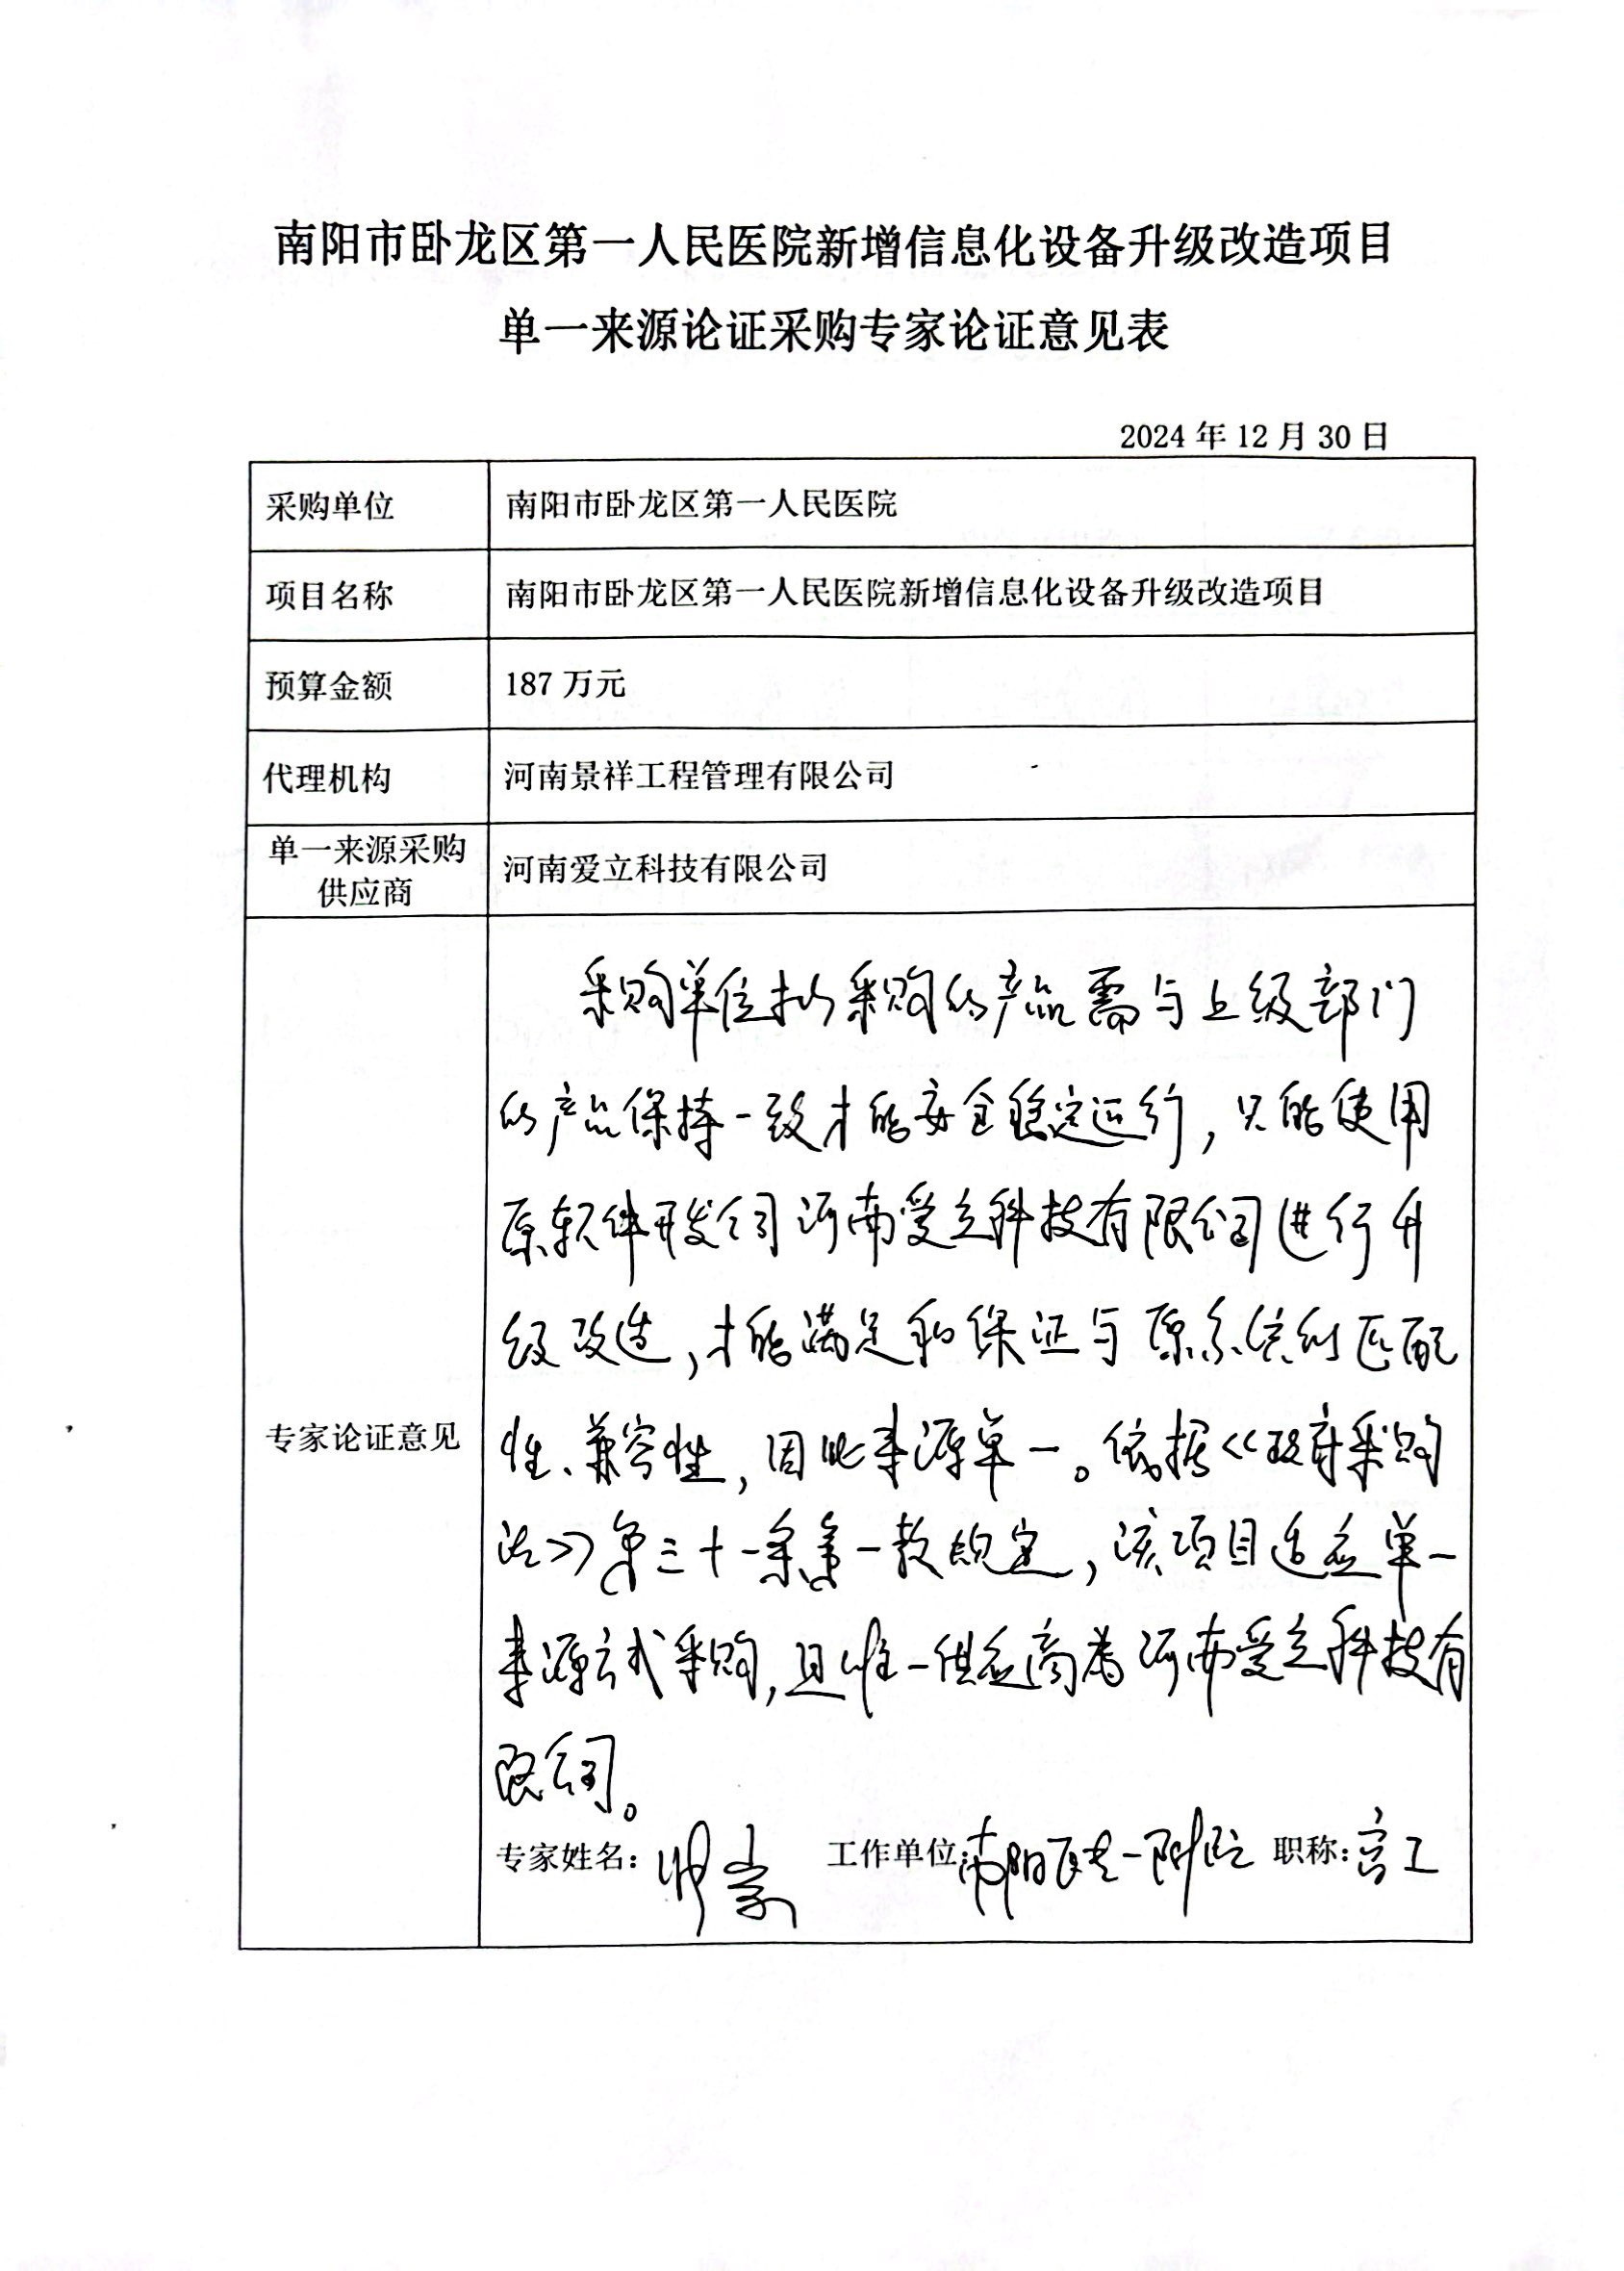 南阳市卧龙区第一人民医院新增信息化设备升级改造项目
单一来源论证采购专家论证意见表
2024年12月30日
采购单位 南阳市卧龙区第一人民医院
项目名称 南阳市卧龙区第一人民医院新增信息化设备升级改造项目
预算金额 187万元
代理机构 河南景祥工程管理有限公司
单一来源采购
供应商
河南爱立科技有限公司
专家论证意见
采购单位拟采购的产品需与上级部门
的产品保持一致才能安全稳定运行，只能使用
原软件开发公司河南爱立科技有限公司进行升
级改造，才能满足和保证与原系统的匹配
性、兼容性，因此来源单一。依据《政府采购
法》第三十一条第一款规定，该项目适应单一
来源方式采购，且唯一供应商为河南爱立科技有
限公司。
专家姓名： 工作单位：南阳医专一附院 职称：高工